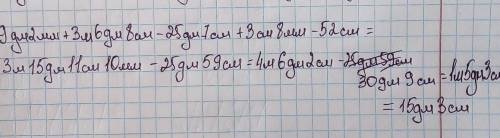 9дм2мм+3м6дм8см-25дм7см+3см8мм-52см=
3м15дм11см10мм-25дм59см=4м6дм2см-25дм59см
30дм9см=1м5дм3см
=15дм3см